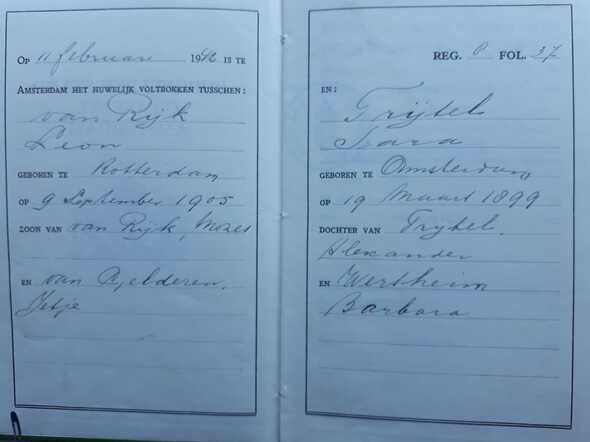 OP 11 februari 1942 IS TE
AMSTERDAM HET HUWELIJK VOLTROKKEN TUSSCHEN:
van Rijk
Leon
GEBOREN TE Rotterdam
OP 9 September 1905
ZOON VAN van Rijk, Mozes
EN van Gelderen,
Jetje
REG. FOL. 37
EN:
Trijtel
Sara
GEBOREN TE Amsterdam
OP 19 Maart 1899
DOCHTER VAN Trytel,
Alexander
EN Wertheim
Barbara